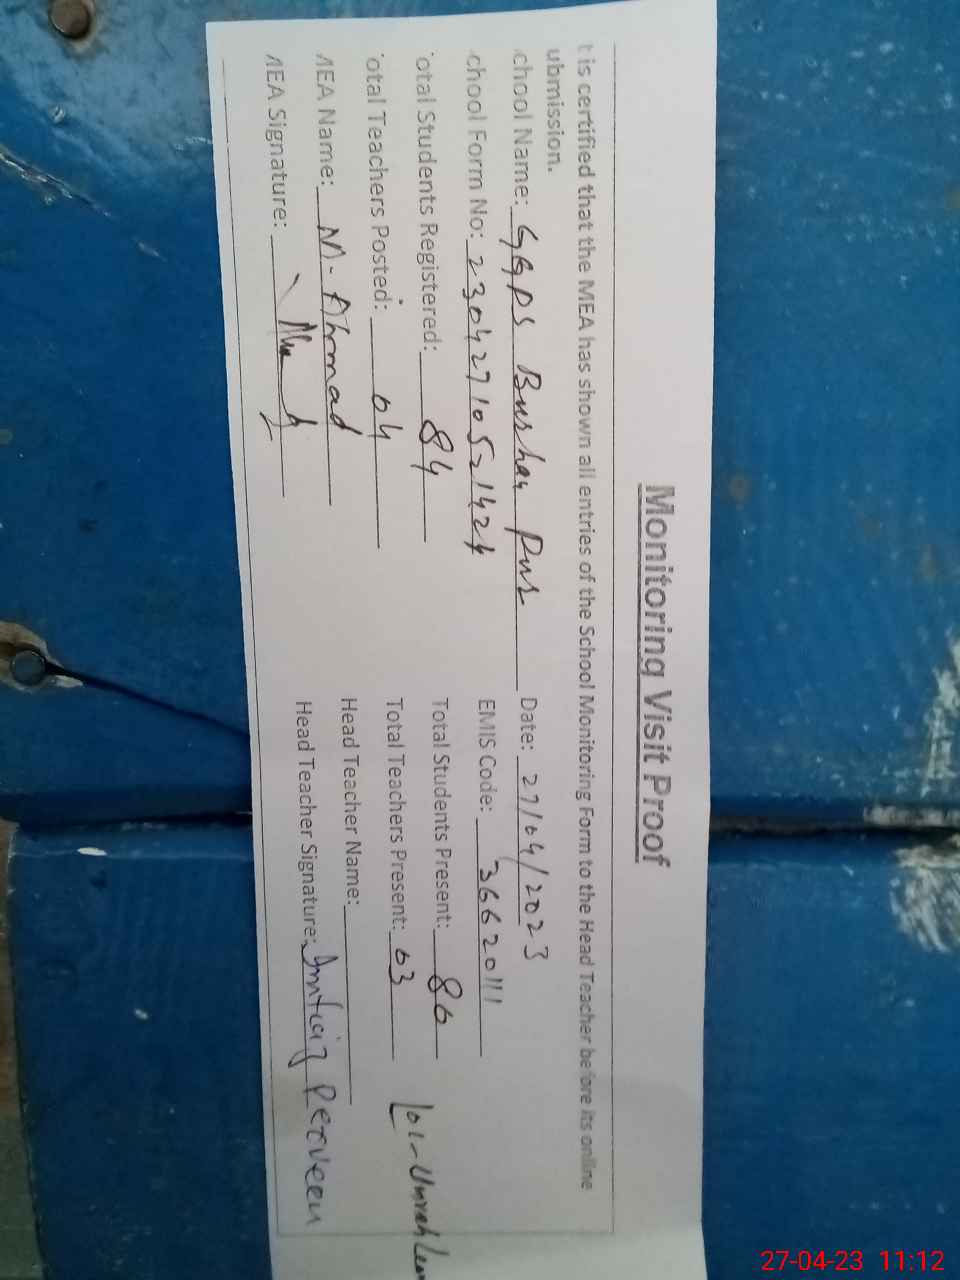 Monitoring Visit Proof
t is certified that the MEA has shown all entries of the School Monitoring Form to the Head Teacher before its online
ubmission.
chool Name: GGPS Bushar Pur Date: 27/04/2023
chool Form No: 23042710521424 EMIS Code: 36620111
otal Students Registered: 84 Total Students Present: 80
otal Teachers Posted: 04 Total Teachers Present: 03 01-Umrah Lea
MEA Name: M. Ahmad Head Teacher Name:
MEA Signature: Head Teacher Signature: Imtiaiz Perveen
27-04-23 11:12